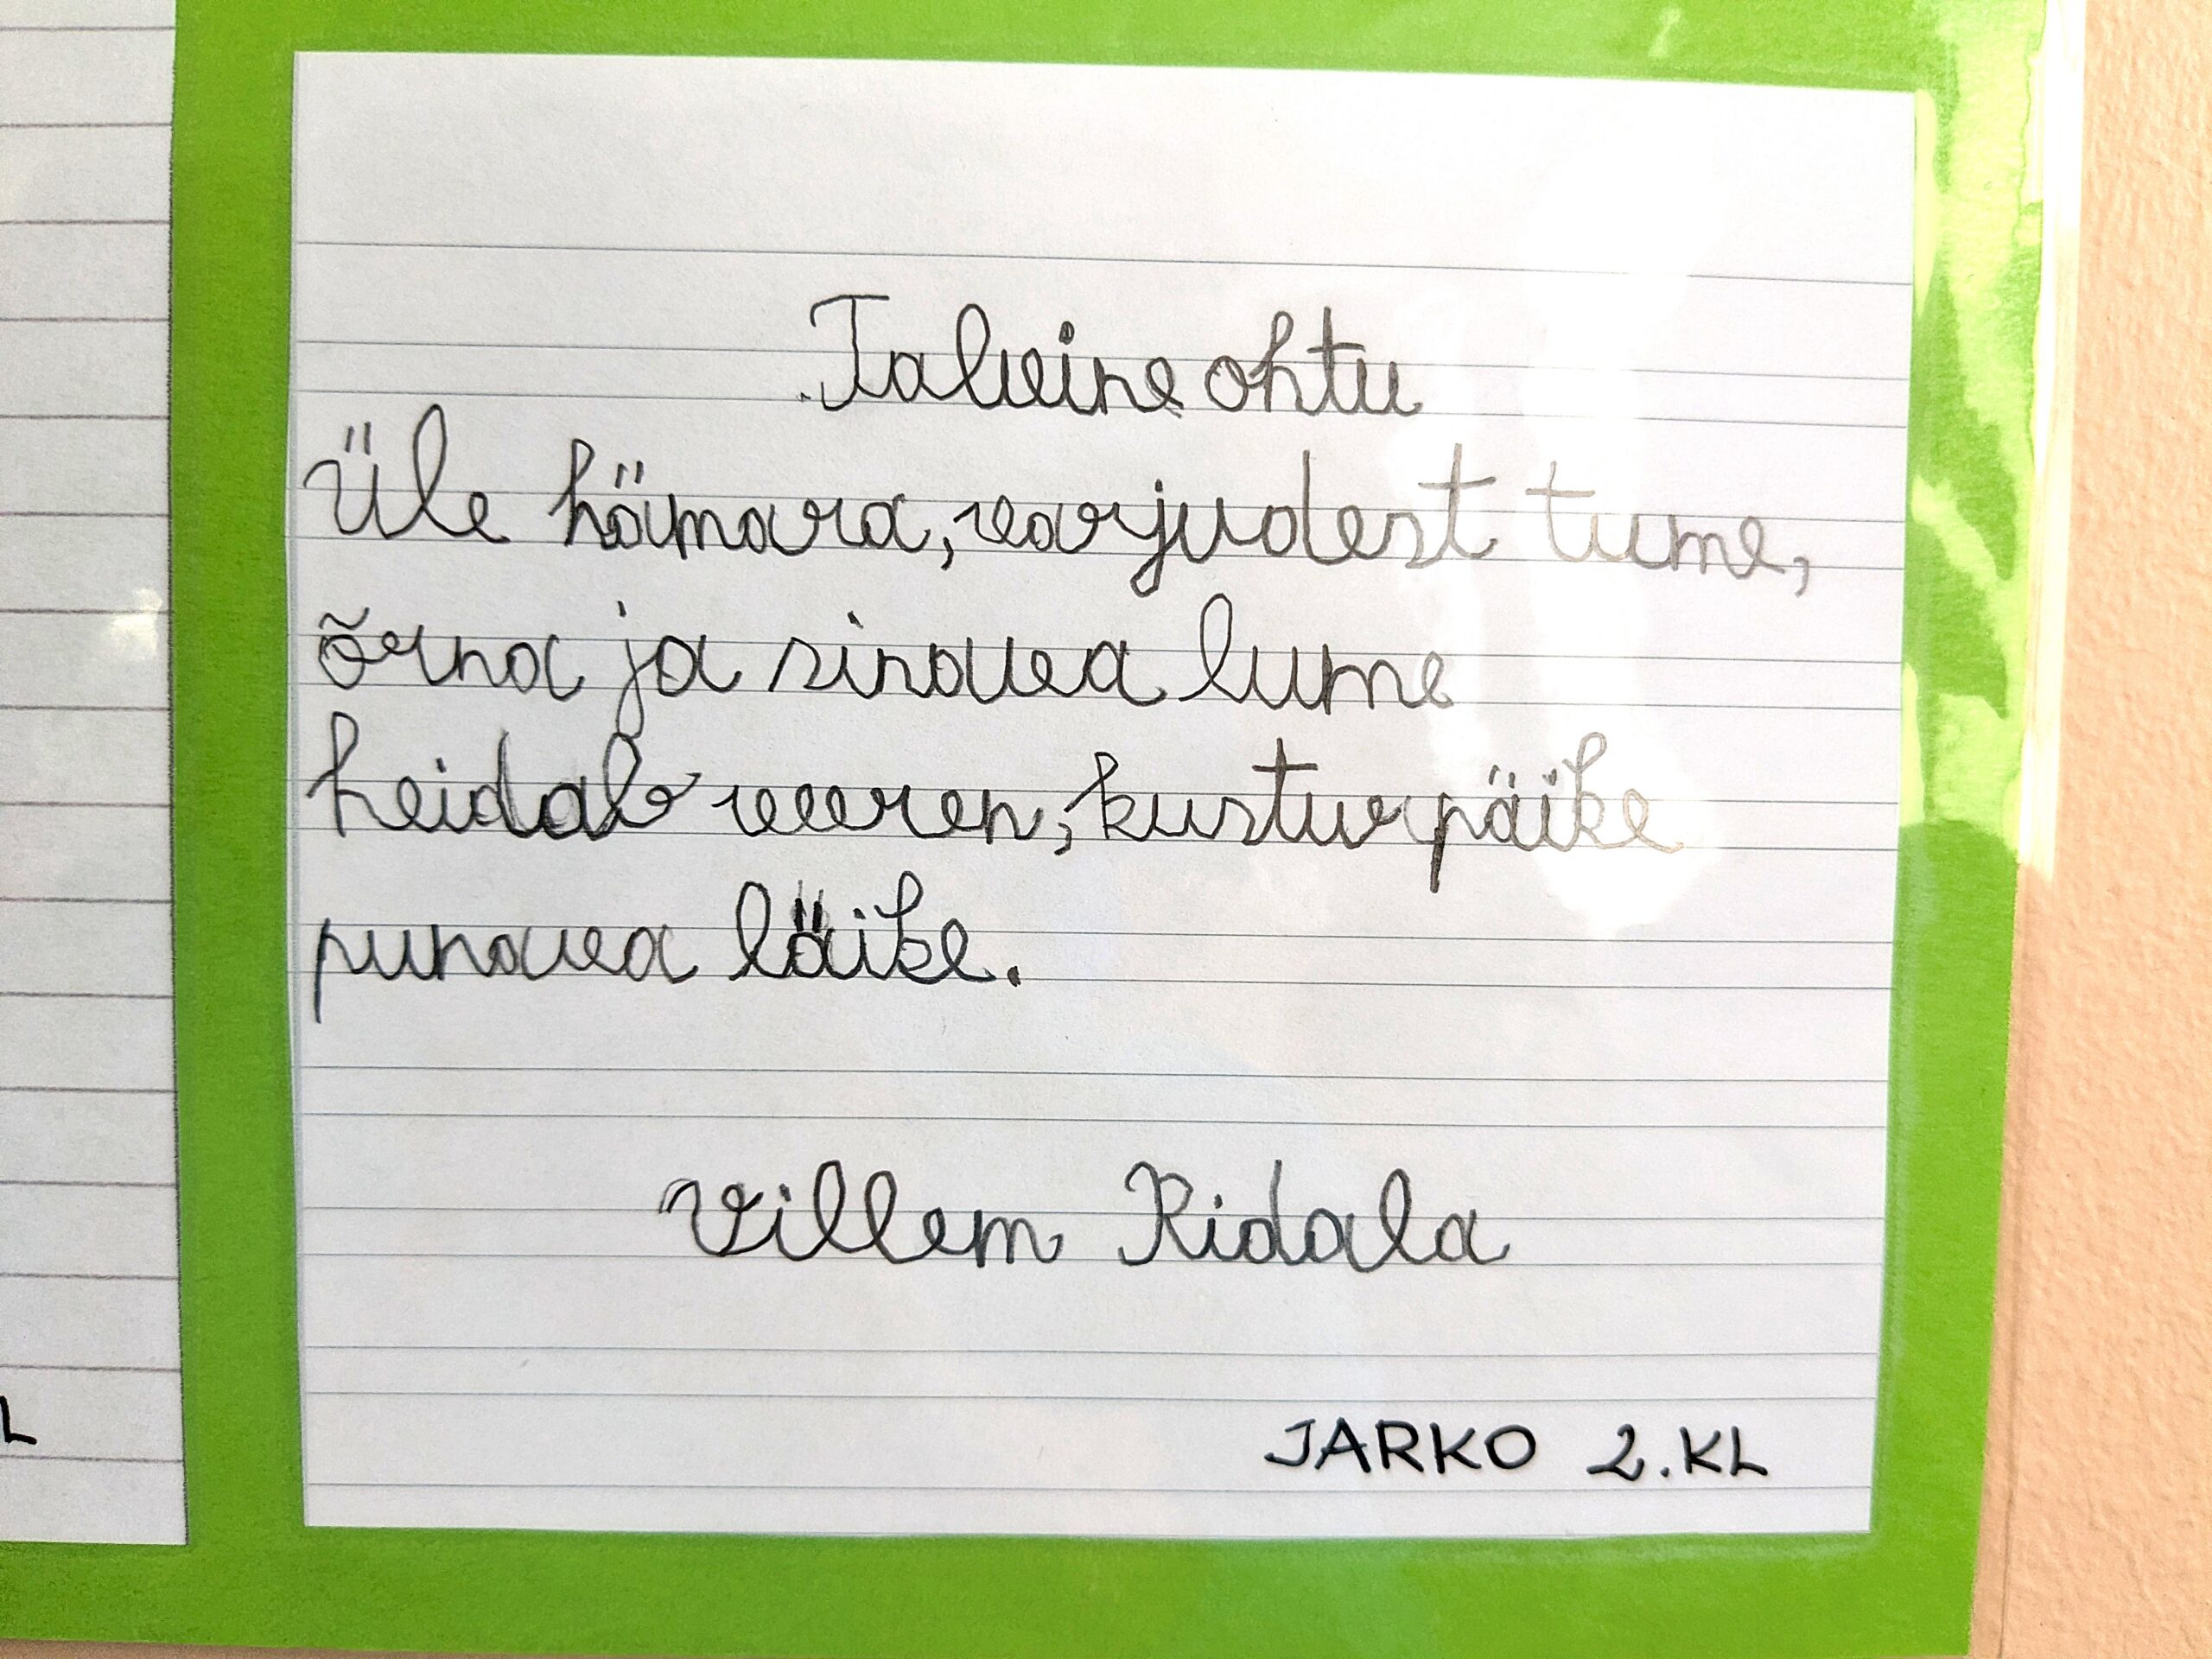 Talveine ohtu
Üle hämara, varjudest tume,
õrna ja sinava lume
heidab veeren, kustuv päike
punava läike.
Villem Ridala
JARKO 2.KL
L